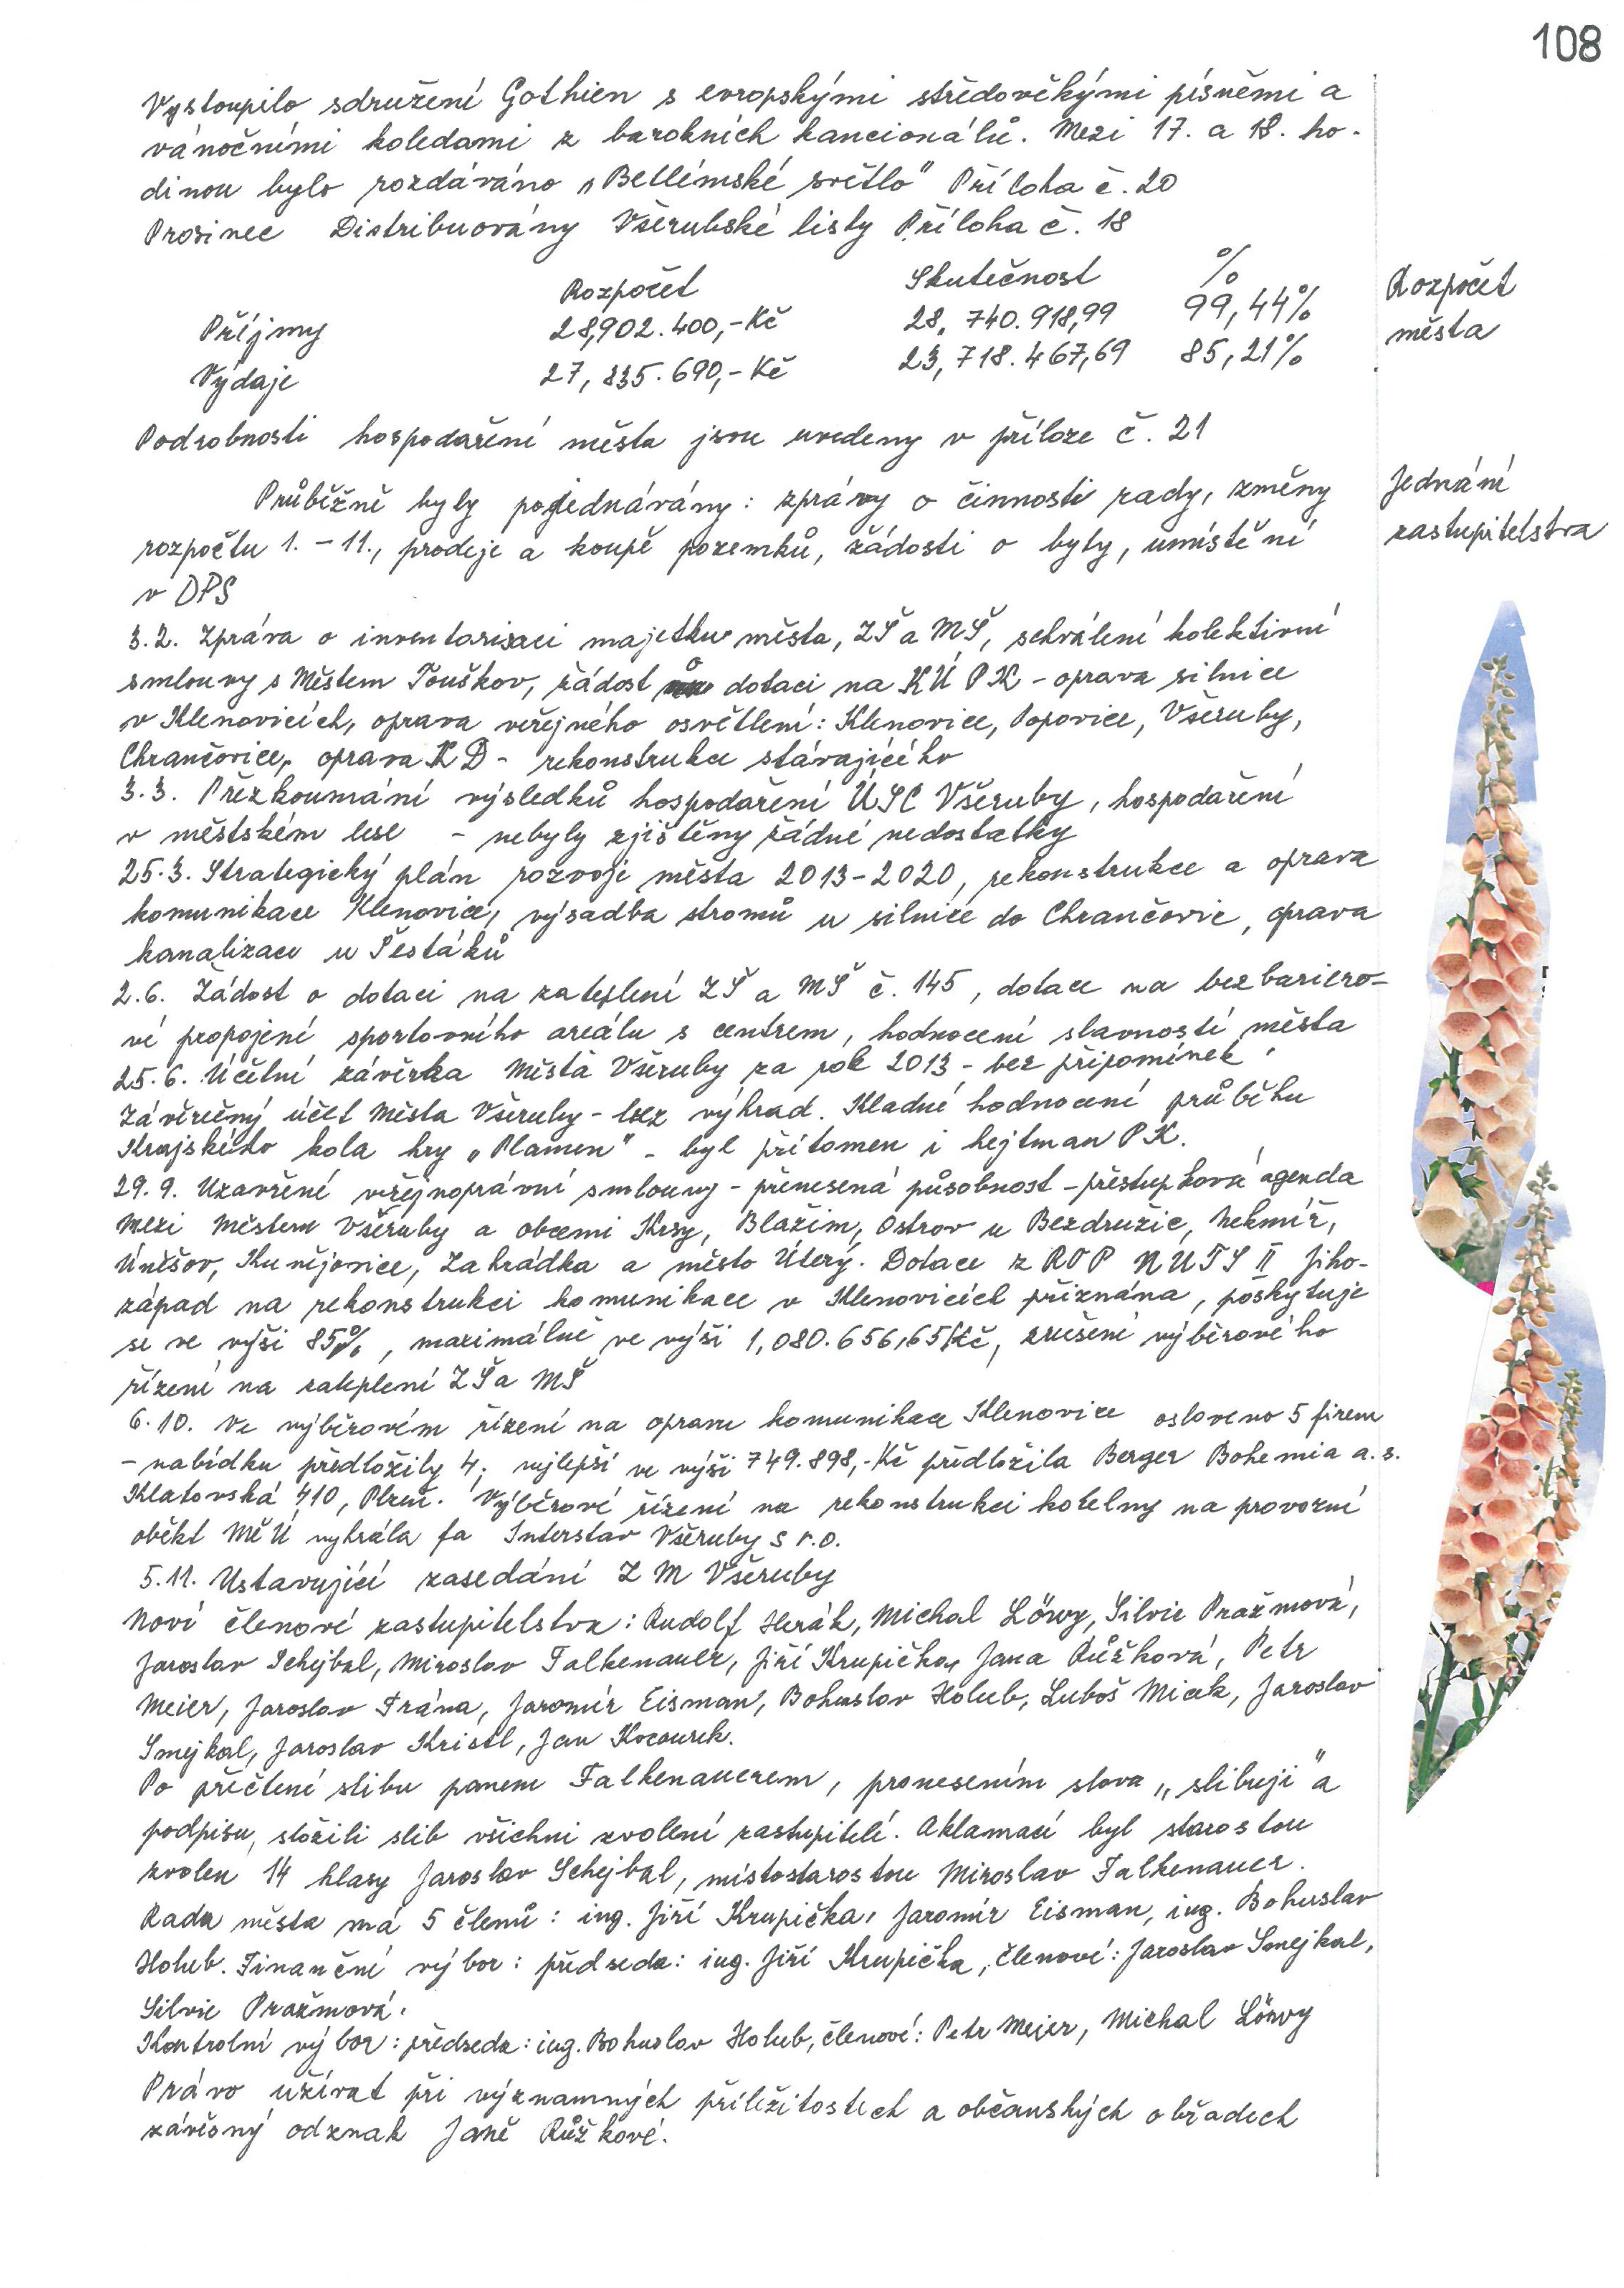 108
Vystoupilo sdružení Gothien s evropskými středověkými písněmi a
vánočními koledami z barokních kancionálů. Mezi 17. a 18. ho-
dinou bylo rozdáváno „Betlémské světlo" Příloha č. 20
Prosinec Distribuovány Všerubské listy Příloha č. 18
Rozpočet Skutečnost %
Příjmy 28,902.400,-Kč 28,740.918,99 99,44%
Výdaje 27,835.690,-Kč 23,718.467,69 85,21%
Rozpočet
města
Podrobnosti hospodaření města jsou uvedeny v příloze č. 21
Jednání
zastupitelstva
Průběžně byly projednávány: zprávy o činnosti rady, změny
rozpočtu 1. - 11., prodeje a koupě pozemků, žádosti o byty, umístění
v DPS
3.2. Zpráva o inventarisaci majetku města, ZŠ a MŠ, schválení kolektivní
smlouvy s Městem Touškov, žádost o dotaci na KÚ PK - oprava silnice
v Klenovicích, oprava veřejného osvětlení: Klenovice, Popovice, Všeruby,
Chrančovice, oprava KD - rekonstrukce stávajícího
3.3. Přezkoumání výsledků hospodaření ÚSC Všeruby, hospodaření
v městském lese - nebyly zjištěny žádné nedostatky
25.3. Strategický plán rozvoje města 2013-2020, rekonstrukce a oprava
komunikace Klenovice, výsadba stromů u silnice do Chrančovic, oprava
kanalizace u Šestáků
2.6. Žádost o dotaci na zateplení ZŠ a MŠ č. 145, dotace na bezbariéro-
vé propojení sportovního areálu s centrem, hodnocení slavností města
25.6. Účetní závěrka Města Všeruby za rok 2013 - bez připomínek.
Závěrečný účet Města Všeruby - bez výhrad. Kladné hodnocení průběhu
Krajského kola hry „Plamen" - byl přítomen i hejtman PK.
29.9. Uzavření veřejnoprávní smlouvy - přenesená působnost - přestupková agenda
mezi Městem Všeruby a obcemi Krsy, Blažim, Ostrov u Bezdružic, Nekmíř,
Úněšov, Kunějovice, Zahrádka a město Úterý. Dotace z ROP NUTS II Jiho-
západ na rekonstrukci komunikace v Klenovicích přiznána, poskytuje
se ve výši 85%, maximálně ve výši 1,080.656,65 Kč, zrušení výběrového
řízení na zateplení ZŠ a MŠ
6.10. Ve výběrovém řízení na opravu komunikace Klenovice osloveno 5 firem
- nabídku předložily 4; nejlepší ve výši 749.898,-Kč předložila Berger Bohemia a.s.
Klatovská 410, Plzeň. Výběrové řízení na rekonstrukci kotelny na provozní
oběkt MěÚ vyhrála fa Interstav Všeruby s r.o.
5.11. Ustavující zasedání ZM Všeruby
Noví členové zastupitelstva: Rudolf Herák, Michal Löwy, Silvie Pražmová,
Jaroslav Schejbal, Miroslav Falkenauer, Jiří Krupička, Jana Růžková, Petr
Meier, Jaroslav Frána, Jaromír Eisman, Bohuslav Holub, Luboš Micek, Jaroslav
Smejkal, Jaroslav Kristl, Jan Kocourek.
Po přečtení slibu panem Falkenauerem, pronesením slova „slibuji" a
podpisu, složili slib všichni zvolení zastupitelé. Aklamací byl starostou
zvolen 14 hlasy Jaroslav Schejbal, místostarostou Miroslav Falkenauer.
Rada města má 5 členů: ing. Jiří Krupička, Jaromír Eisman, ing. Bohuslav
Holub. Finanční výbor: předseda: ing. Jiří Krupička, členové: Jaroslav Smejkal,
Silvie Pražmová.
Kontrolní výbor: předseda: ing. Bohuslav Holub, členové: Petr Mejer, Michal Löwy
Právo užívat při významných příležitostech a občanských obřadech
závěsný odznak Janě Růžkové.